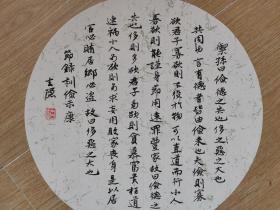 禦孫曰儉德之共也侈惡之大也
共同也言有德者皆由儉來也夫儉則寡
欲君子寡欲則不役於物可以直道而行小人
寡欲則能謹身節用遠罪豐家故曰儉德之
共也侈則多欲君子多欲則貪慕富貴枉道
速禍小人多欲則多求妄用敗家喪身是以居
官必賄居鄉必盜故曰侈惡之大也
節錄訓儉示康